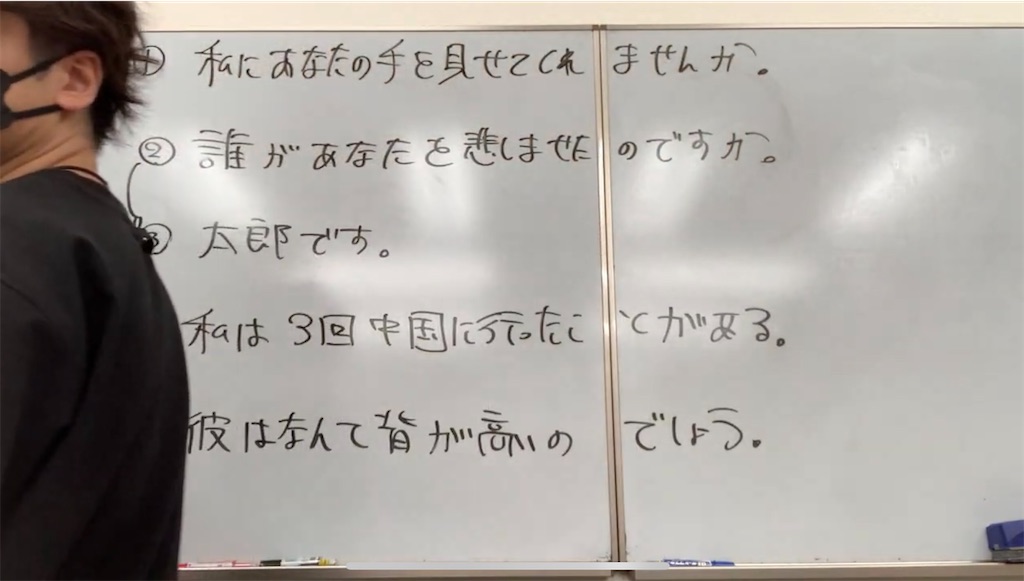 ① 私にあなたの手を見せてくれませんか。
② 誰があなたを悲しませたのですか。
③ 太郎です。
私は3回中国に行ったことがある。
彼はなんて背が高いのでしょう。